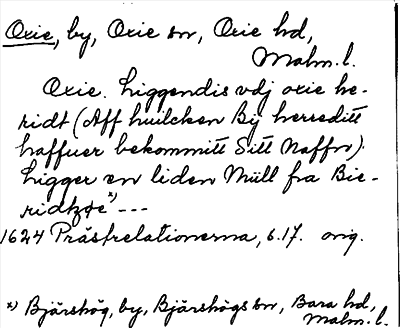 Oxie, by, Oxie sn, Oxie hd,
Malm. l.
Oxie. Liggendis vdj oxie he-
ridt (Aff huilcken By herreditt
haffuer bekommitt Sitt Naffn).
Ligger en liden Müll fra Bie-
ridtz x) ---
1624 Prästrelationerna, s. 17. orig.
x) Bjärshög, by, Bjärshögs sn, Bara hd,
Malm. l.